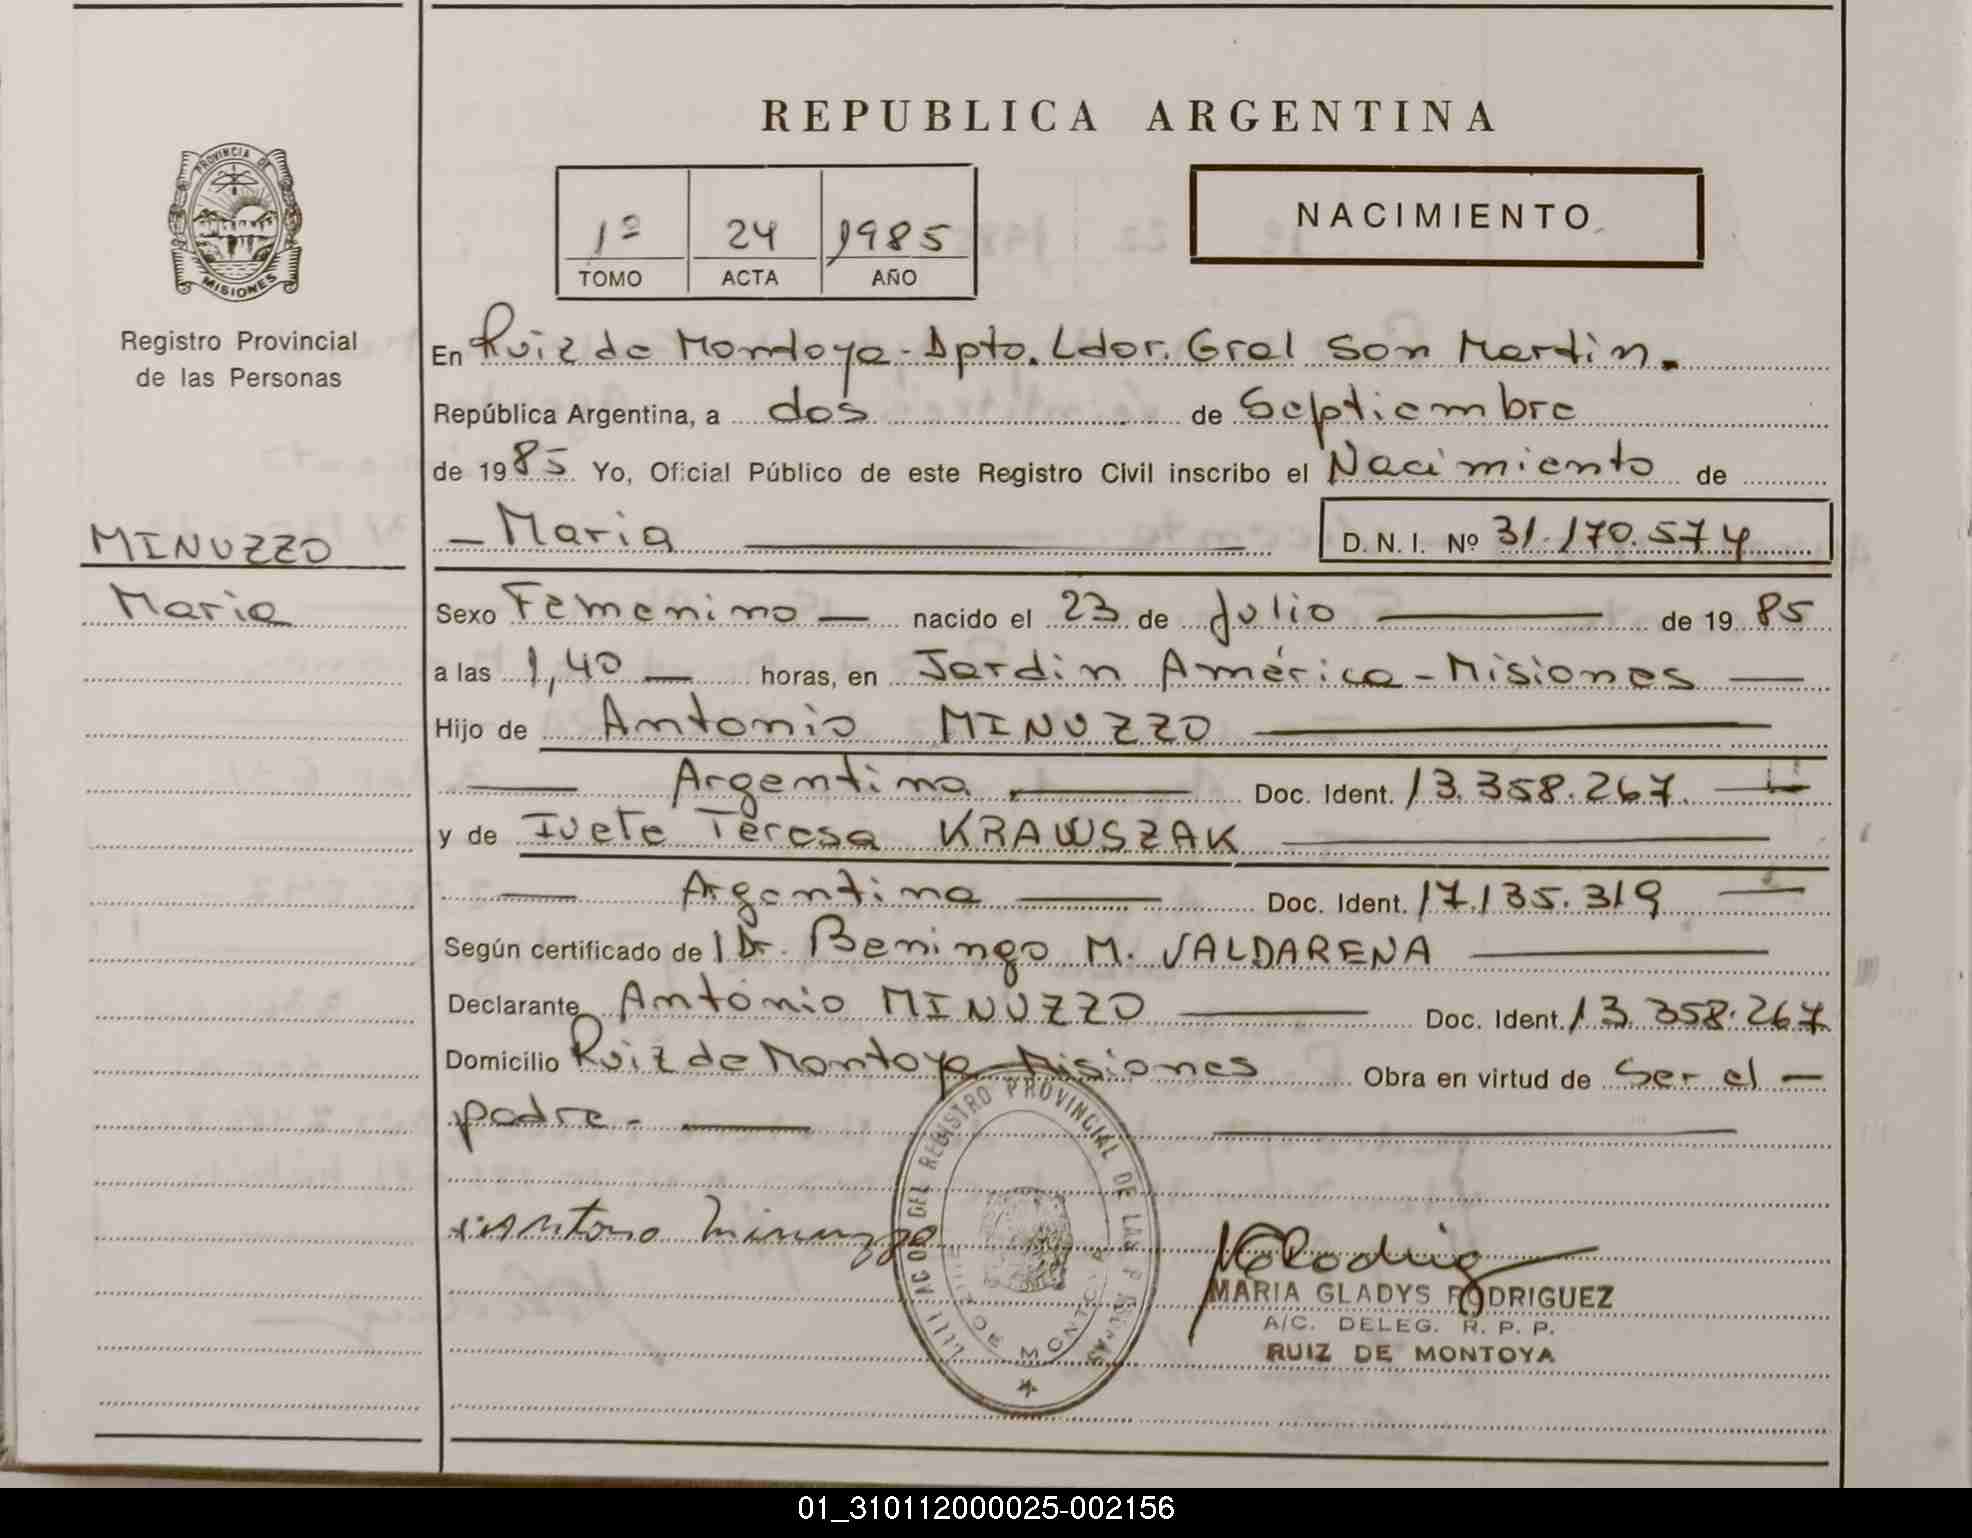 REPUBLICA ARGENTINA
PROVINCIA DE
MISIONES
Registro Provincial
de las Personas
MINUZZO
Maria
1º 24 1985
TOMO ACTA AÑO
NACIMIENTO
En Ruiz de Montoya - Dpto. Ldor. Gral San Martin.
República Argentina, a dos de Septiembre
de 1985 Yo, Oficial Público de este Registro Civil inscribo el Nacimiento de
- Maria D. N. I. Nº 31.170.574
Sexo Femenino nacido el 23 de Julio de 1985
a las 1,40 horas, en Jardin América - Misiones
Hijo de Antonio MINUZZO
Argentina Doc. Ident. 13.358.267.
y de Ivete Teresa KRAWSZAK
Argentina Doc. Ident. 17.135.319
Según certificado de l Dr. Beningo M. VALDARENA
Declarante Antonio MINUZZO Doc. Ident. 13.358.267
Domicilio Ruiz de Montoya - Misiones Obra en virtud de ser el
padre -
Antonio Minuzzo
DEL REGISTRO PROVINCIAL DE LAS
MONTOYA
MARIA GLADYS RODRIGUEZ
A/C. DELEG. R. P. P.
RUIZ DE MONTOYA
01_310112000025-002156